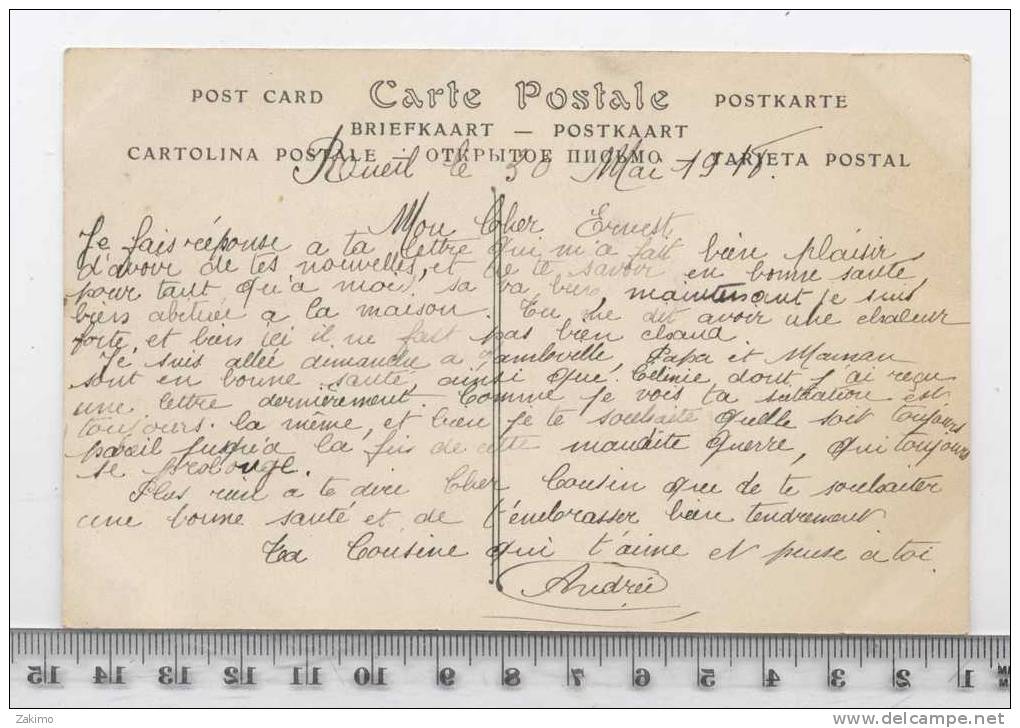 POST CARD Carte Postale POSTKARTE
BRIEFKAART — POSTKAART
CARTOLINA POSTALE · ОТКРЫТОЕ ПИСЬМО · TARJETA POSTAL
Rueil le 30 Mai 1918.
Mon Cher Ernest
Je fais réponse a ta lettre qui m'a fait bien plaisir
d'avoir de tes nouvelles, et de te savoir en bonne santé,
pour tant qu'a moi sa va bien, maintenant je suis
bien abituée a la maison. Tu me dit avoir une chaleur
forte, et bien ici il ne fait pas bien chaud
Je suis allée dimanche a Papa et Maman
sont en bonne santé, ainsi que dont j'ai reçu
une lettre dernièrement. Comme je vois ta situation est
toujours la même, et bien je te souhaite quelle soit toujours
pareil jusqu'a la fin de cette maudite guerre, qui toujours
se prolonge.
Plus rien a te dire Cher Cousin que de te souhaiter
une bonne santé et de t'embrasser bien tendrement.
Ta Cousine qui t'aime et pense a toi.
Andrée
15 14 13 12 11 10 9 8 7 6 5 4 3 2 1 MM
Zakimo
http://www.delcampe.net